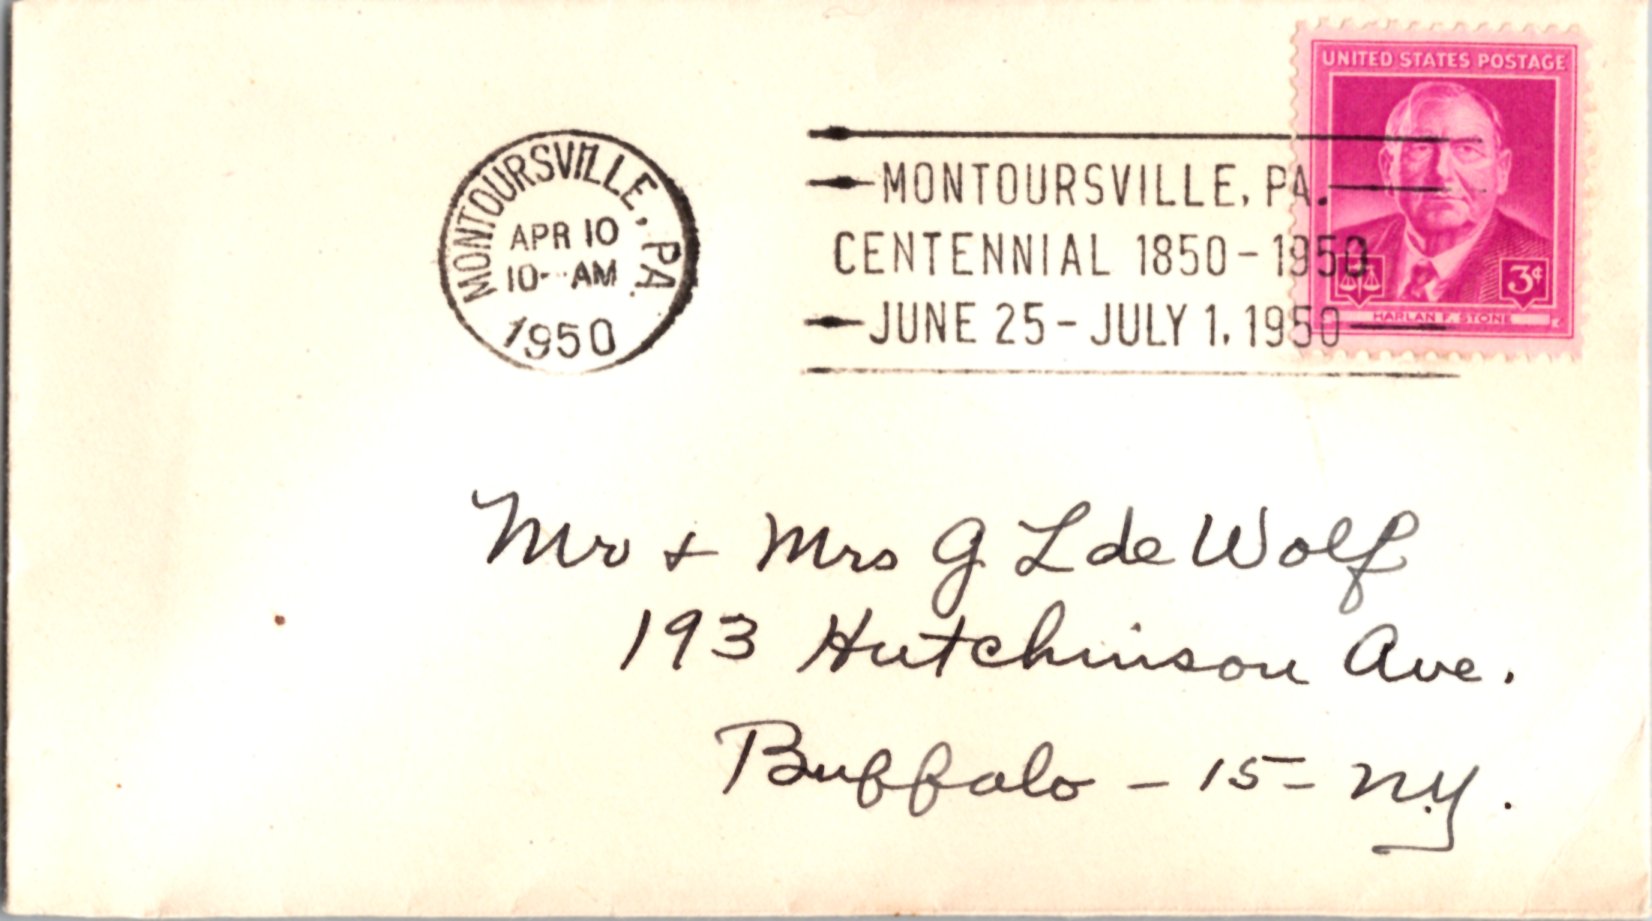 UNITED STATES POSTAGE
3¢
HARLAN F. STONE
MONTOURSVILLE, PA.
APR 10
10- AM
1950
MONTOURSVILLE, PA.
CENTENNIAL 1850-1950
JUNE 25-JULY 1, 1950
Mr + Mrs G L de Wolf
193 Hutchinson Ave.
Buffalo - 15 - N.Y.